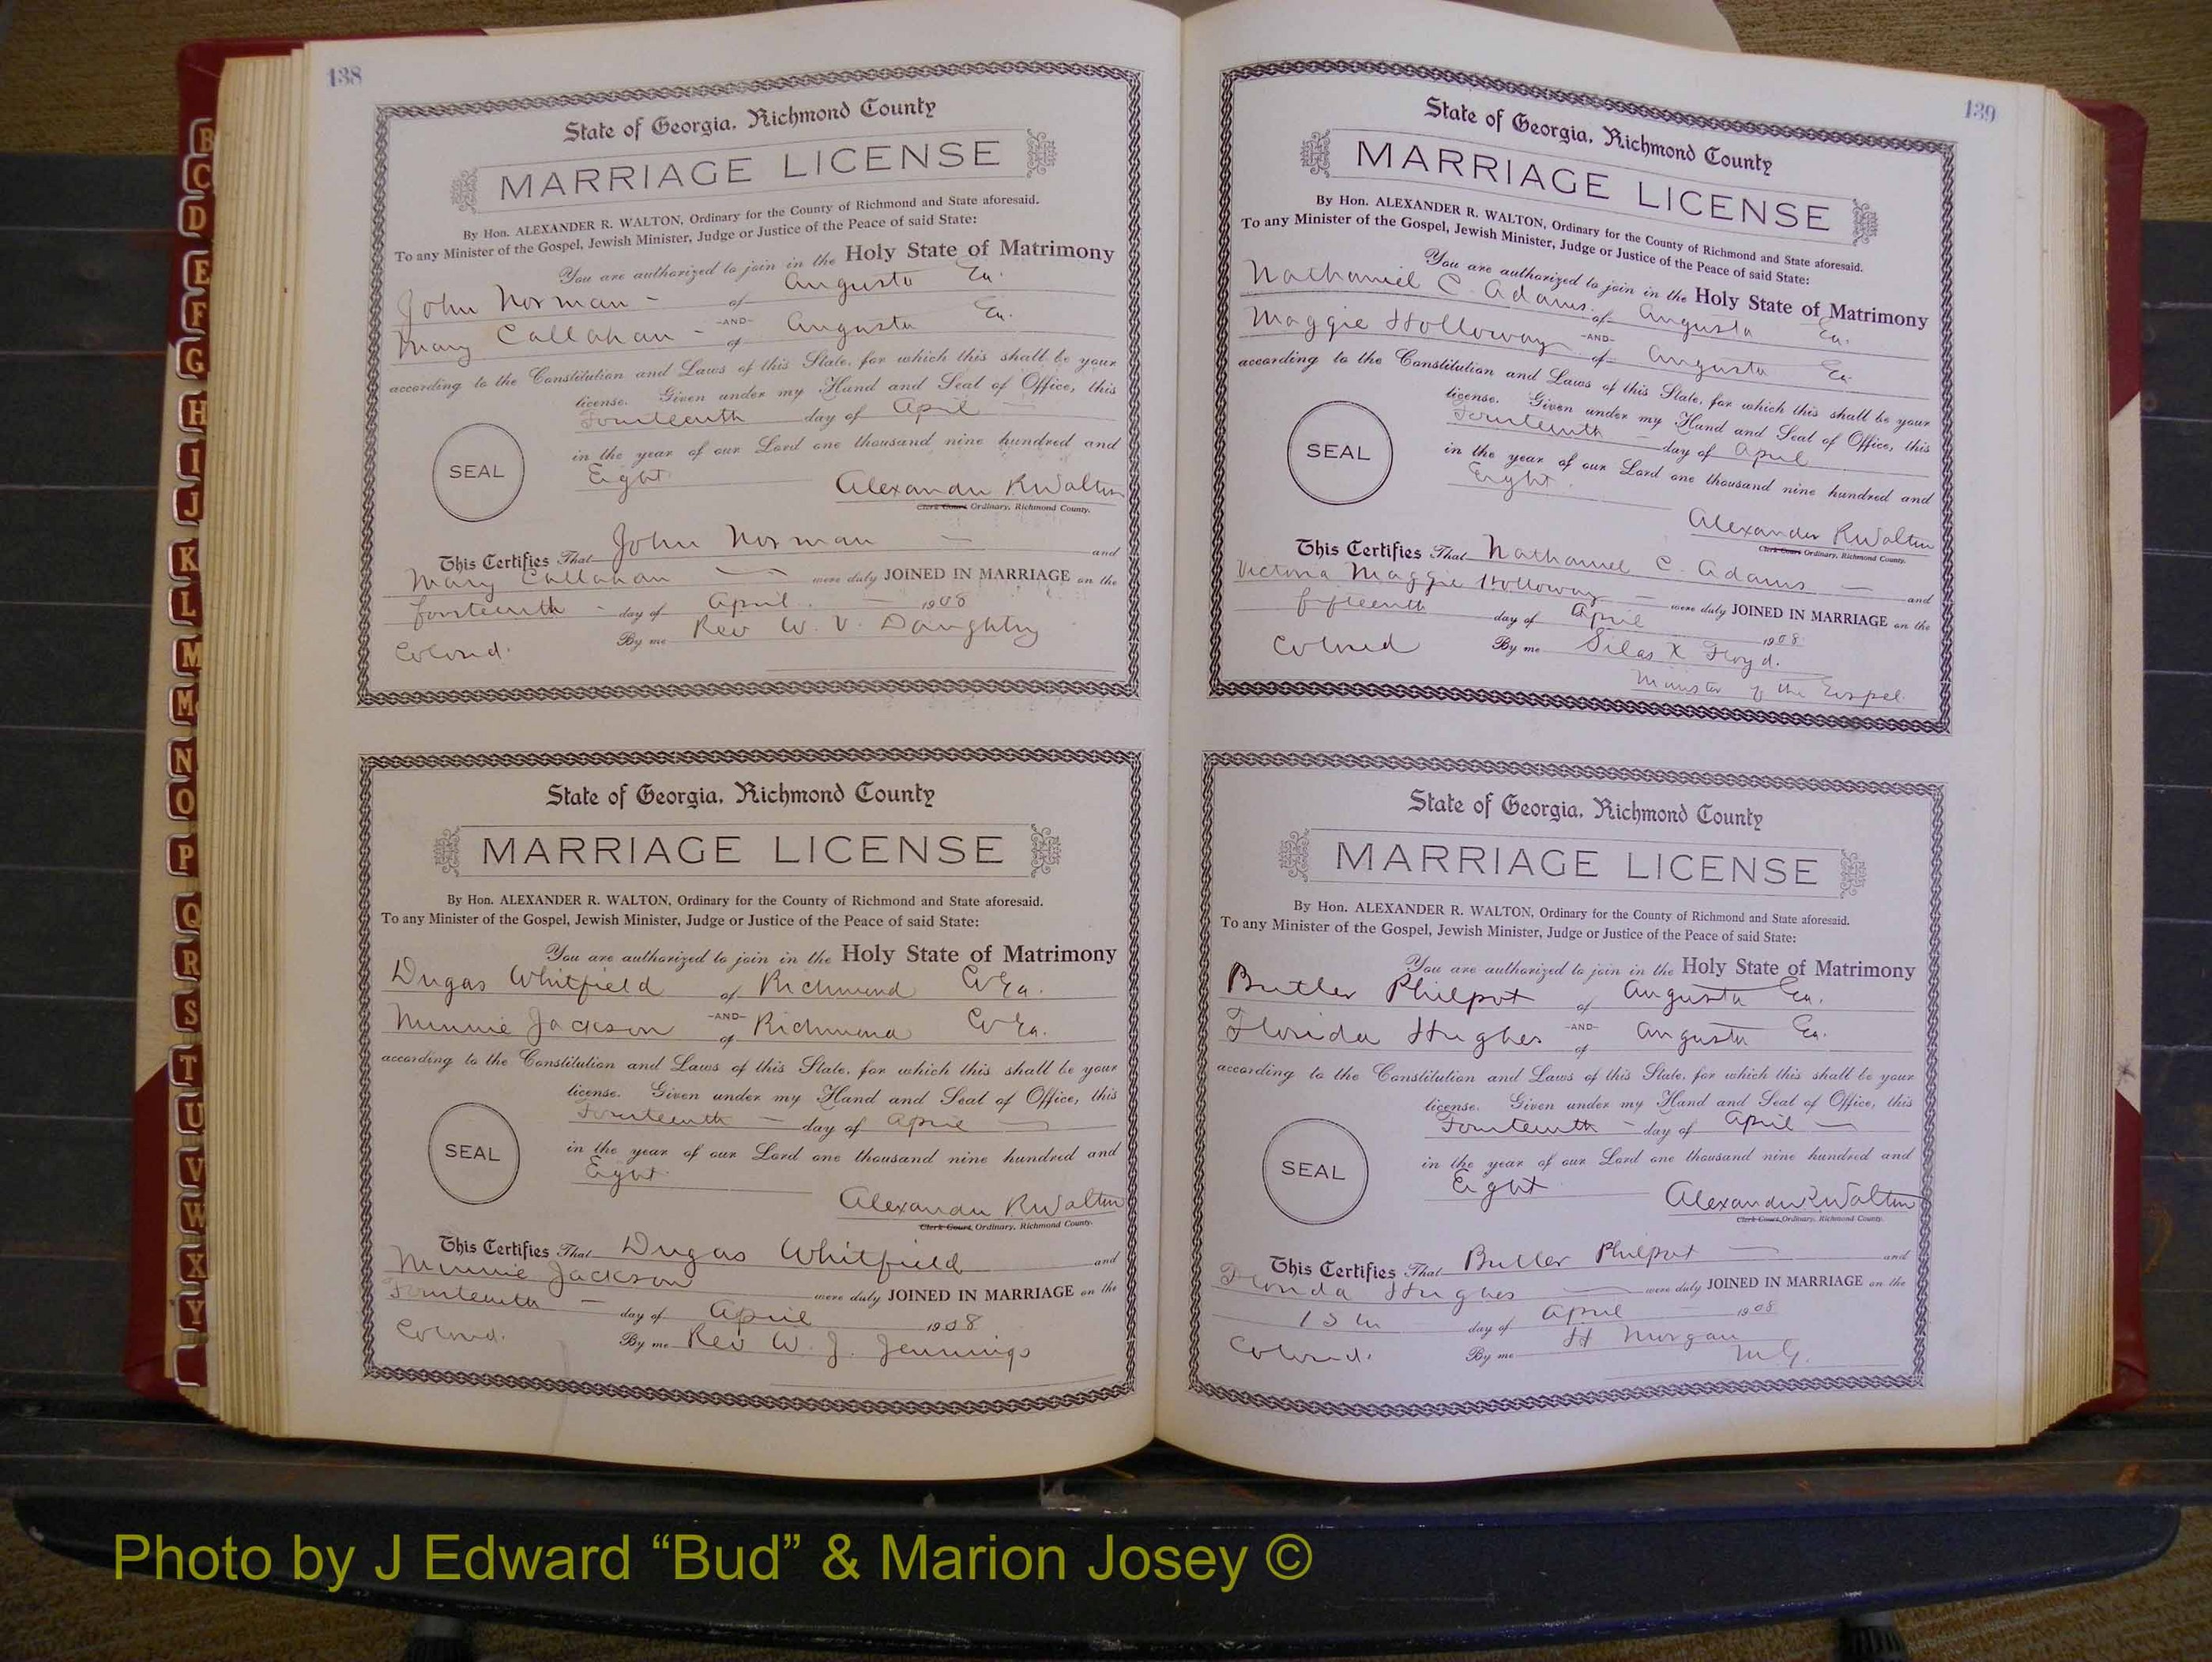 138
State of Georgia, Richmond County
MARRIAGE LICENSE
By Hon. ALEXANDER R. WALTON, Ordinary for the County of Richmond and State aforesaid.
To any Minister of the Gospel, Jewish Minister, Judge or Justice of the Peace of said State:
You are authorized to join in the Holy State of Matrimony
John Norman - of Augusta Ga.
-AND-
Mary Callahan - of Augusta Ga.
according to the Constitution and Laws of this State, for which this shall be your
license. Given under my Hand and Seal of Office, this
Fourteenth day of April
in the year of our Lord one thousand nine hundred and
SEAL
Eight
Alexander R Walton
Clerk Court Ordinary, Richmond County.
This Certifies That John Norman and
Mary Callahan were duly JOINED IN MARRIAGE on the
fourteenth - day of April 1908
Colored. By me Rev W. V. Daughtry
State of Georgia, Richmond County
MARRIAGE LICENSE
By Hon. ALEXANDER R. WALTON, Ordinary for the County of Richmond and State aforesaid.
To any Minister of the Gospel, Jewish Minister, Judge or Justice of the Peace of said State:
You are authorized to join in the Holy State of Matrimony
Dugas Whitfield of Richmond Co Ga.
-AND-
Minnie Jackson of Richmond Co Ga.
according to the Constitution and Laws of this State, for which this shall be your
license. Given under my Hand and Seal of Office, this
Fourteenth - day of April
in the year of our Lord one thousand nine hundred and
SEAL
Eight
Alexander R Walton
Clerk Court, Ordinary, Richmond County.
This Certifies That Dugas Whitfield and
Minnie Jackson were duly JOINED IN MARRIAGE on the
Fourteenth - day of April 1908
Colored. By me Rev W. J. Jennings
139
State of Georgia, Richmond County
MARRIAGE LICENSE
By Hon. ALEXANDER R. WALTON, Ordinary for the County of Richmond and State aforesaid.
To any Minister of the Gospel, Jewish Minister, Judge or Justice of the Peace of said State:
You are authorized to join in the Holy State of Matrimony
Nathaniel C. Adams. of Augusta Ga.
-AND-
Maggie Holloway of Augusta Ga.
according to the Constitution and Laws of this State, for which this shall be your
license. Given under my Hand and Seal of Office, this
Fourteenth - day of April
in the year of our Lord one thousand nine hundred and
SEAL
Eight.
Alexander R Walton
Clerk Court Ordinary, Richmond County.
This Certifies That Nathaniel C. Adams and
Victoria Maggie Holloway were duly JOINED IN MARRIAGE on the
fifteenth day of April 1908
Colored By me Silas X Floyd.
Minister of the Gospel
State of Georgia, Richmond County
MARRIAGE LICENSE
By Hon. ALEXANDER R. WALTON, Ordinary for the County of Richmond and State aforesaid.
To any Minister of the Gospel, Jewish Minister, Judge or Justice of the Peace of said State:
You are authorized to join in the Holy State of Matrimony
Butler Philpot of Augusta Ga.
-AND-
Florida Hughes of Augusta Ga.
according to the Constitution and Laws of this State, for which this shall be your
license. Given under my Hand and Seal of Office, this
Fourteenth - day of April
in the year of our Lord one thousand nine hundred and
SEAL
Eight
Alexander R Walton
Clerk Court, Ordinary, Richmond County.
This Certifies That Butler Philpot and
Florida Hughes were duly JOINED IN MARRIAGE on the
15th day of April 1908
Colored. By me H Morgan
M G.
B
C
D
E
F
G
H
I
J
K
L
M
M
N
O
P
Q
R
S
T
U
V
W
X
Y
Photo by J Edward “Bud” & Marion Josey ©